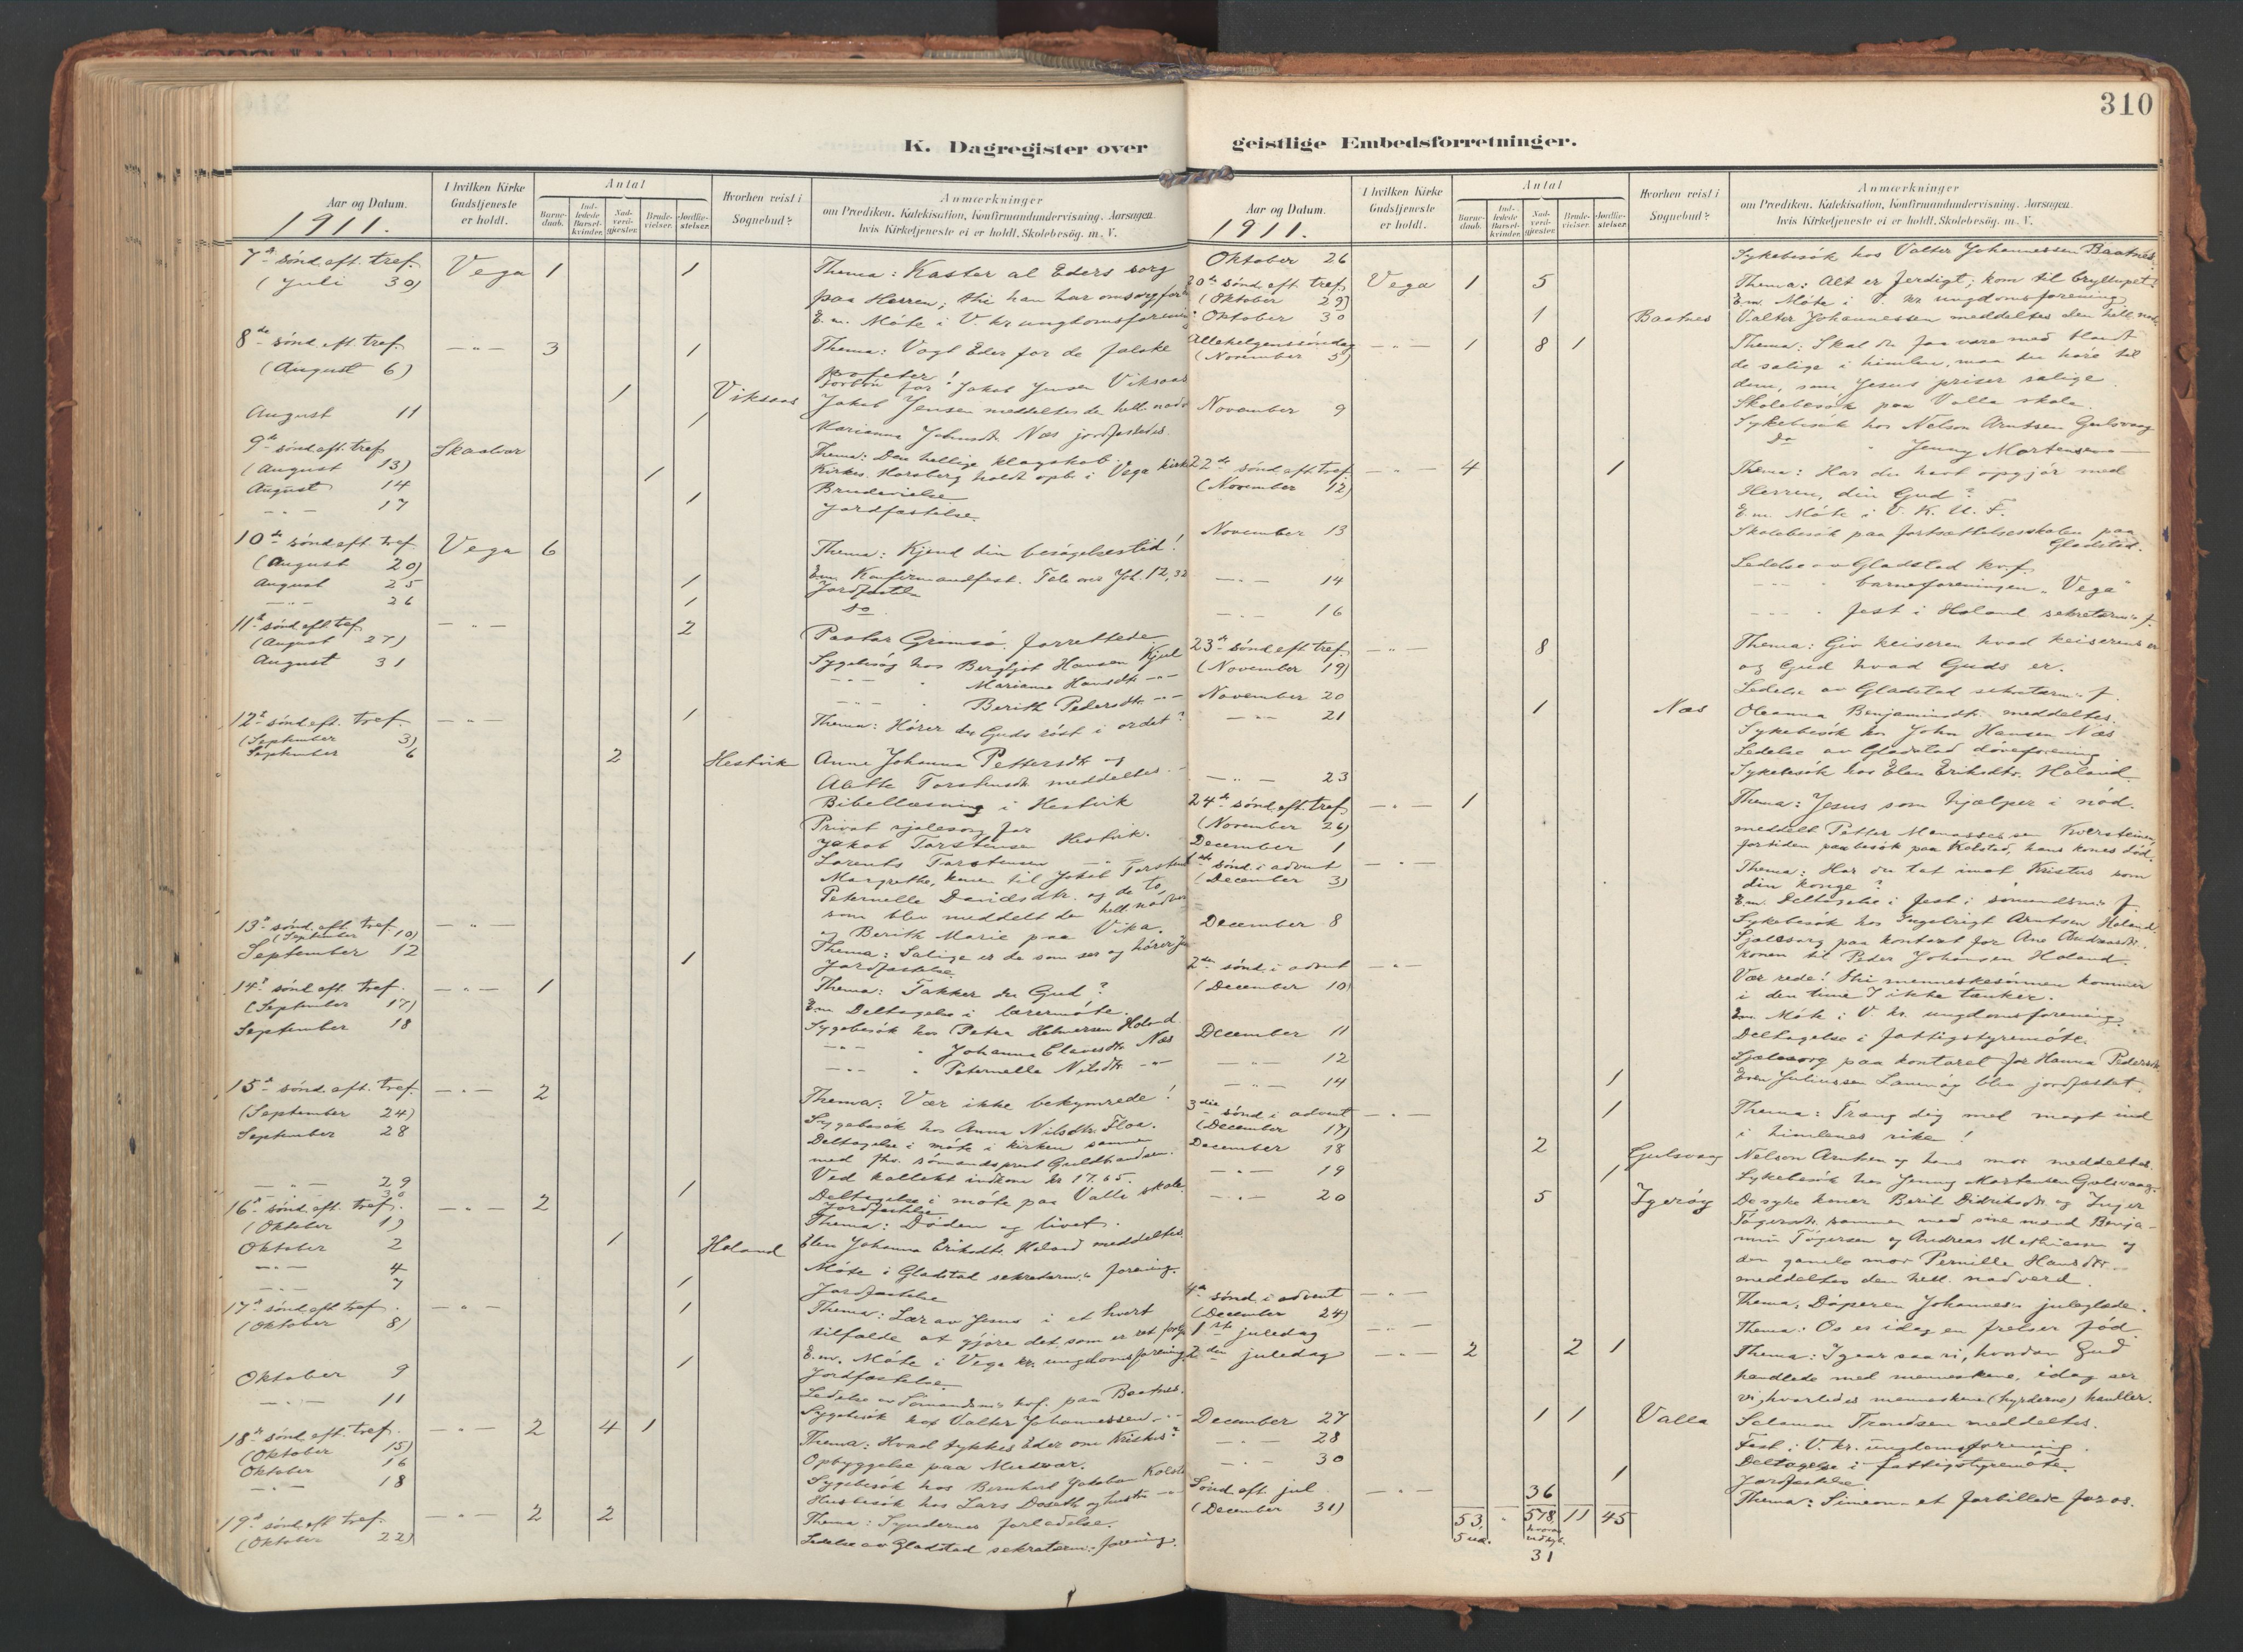 310
K. Dagregister over geistlige Embedsforretninger.
Aar og Datum.
1911.
I hvilken Kirke Gudstjeneste er holdt.
Antal
Barne-daab.
Ind-ledede Barsel-kvinder.
Nad-verd-gjester.
Brude-vielser.
Jordfæ-stelser.
Hvorhen reist i Sognebud?
Anmærkninger
om Prædiken, Katekisation, Konfirmandundervisning. Aarsagen
hvis Kirketjeneste ei er holdt, Skolebesög. m. V.
7de sönd. eft. tref. Vega 1 1 Thema: Kaster al Eders sorg
(Juli 30) paa Herren; thi han har omsorg for
E.m. Möte i V. kr ungdomsforening
8de sönd. eft. tref. -"- 3 1 Thema: Vogt Eder for de falske
(August 6) profeter!
Forbön for Jakob Jensen Viksaas
August 11 1 Viksaas Jakob Jensen meddeltes den hell. nadv
1 Marianna Johnsdtr. Næs jordfæstedes.
9de sönd. eft. tref. Skaalvær Thema: Den hellige klagskab.
(August 13) Kirkes. Horsberg holdt opb. i Vega kirke
August 14 1 Brudevielse
-"- 17 1 Jordfæstelse.
10de sönd. eft. tref. Vega 6 Thema: Kjend din besögelsestid!
(August 20) E.m. Konfirmandfest. Tale over Joh. 12, 32
August 25 1 Jordfæstelse
-"- 26 1 do
11te sönd. eft. tref. -"- 2 Pastor Grimsö forrettede
(August 27)
August 31 Sygebesög hos Bergljot Hansen Kjul
-"- Marianne Hansdtr. -"-
-"- Berith Pedersdtr. -"-
12te sönd. eft. tref. -"- 1 Thema: Hörer du Guds röst i ordet?
(September 3)
September 6 2 Hestvik Anne Johanna Pettersdtr. og
Alette Torstensdtr. meddeltes.
Bibellæsning i Hestvik
Privat sjælesorg for
Jakob Torstensen Hestvik.
Lorents Torstensen -"-
Margrethe, konen til Jakob Torstens
Peternelle Davidsdtr. og de to,
som blev meddelt den hell. nadver
og Berith Marie paa Vika.
13de sönd. eft. tref. -"- Thema: Salige er de som ser og hörer Je
(September 10)
September 12 1 Jordfæstelse.
14de sönd. eft. tref. -"- 1 Thema: Takker du Gud?
(September 17) E.m Deltagelse i lærermöte.
September 18 Sygebesök hos Petra Helmersen Holand
-"- Johanna Elavesdtr. Næs
-"- Peternelle Nilsdtr. -"-
15de sönd. eft. tref. -"- 2 Thema: Vær ikke bekymrede!
(September 24)
September 28 Sygebesök hos Anna Nilsdtr. Floa.
Deltagelse i möte i kirken sammen
med fhv. sömandsprest Guldbrandsen.
Ved kollekt indkom kr 17.65.
-"- 29 Deltagelse i möte paa Valla skole.
-"- 30 1 Jordfæstelse
16de sönd. eft. tref. -"- 2 Thema: Döden og livet.
(Oktober 1)
Oktober 2 1 Holand Elen Johanna Eriksdtr. Holand meddeltes.
-"- 4 Möte i Gladstad sekretærm:s forening.
-"- 7 1 Jordfæstelse
17de sönd. eft. tref. -"- 1 Thema: Lær av Jesus i et hvert
(Oktober 8) tilfælde at gjöre det, som er ret for Gu
E.m. Möte i Vega kr. ungdomsforening
Oktober 9 1 Jordfæstelse
-"- 11 Ledelse av Sömandsm:s kvf. paa Baatnes.
Sygebesök hos Valter Johannessen -"-
18de sönd. eft. tref. -"- 2 4 1 Thema: Hvad tykkes Eder om Kristus?
(Oktober 15)
Oktober 16 Opbyggelse paa Mudvær.
-"- 18 Sygebesök hos Bernhart Jakobsen Kolsta
Husbesök hos Lars Doseth og hustru -"-
19de sönd. eft. tref. -"- 2 2 Thema: Syndernes forladelse.
(Oktober 22) Ledelse av Gladstad sekretærm:s forening.
Aar og Datum.
1911.
I hvilken Kirke Gudstjeneste er holdt.
Antal
Barne-daab.
Ind-ledede Barsel-kvinder.
Nad-verd-gjester.
Brude-vielser.
Jordfæ-stelser.
Hvorhen reist i Sognebud?
Anmærkninger
om Prædiken, Katekisation, Konfirmandundervisning. Aarsagen
hvis Kirketjeneste ei er holdt, Skolebesög. m. V.
Oktober 26 Sykebesök hos Valter Johannessen Baatnes.
20de sönd. eft. tref. Vega 1 5 Thema: Alt er færdigt; kom til bryllupet!
(Oktober 29) E.m. Möte i V. kr ungdomsforening
Oktober 30 1 Baatnes Valter Johannessen meddeltes den hell. nadv.
Allehelgenssöndag -"- 1 8 1 Thema: Skal du faa være med blandt
(November 5) de salige i himlen, maa du höre til
dem, som Jesus priser salige.
November 9 Skolebesök paa Valla skole.
Sykebesök hos Nelson Arntsen Gulsvaag
do " Jenny Mortensen -"-
22de sönd. eft. tref. -"- 4 1 Thema: Har du havt opgjör med
(November 12) Herren, din Gud?
E.m. Möte i V. K. U. F.
November 13 Skolebesök paa fortsættelsesskolen paa
Gladstad.
Ledelse av Gladstad kv.f.
-"- 14 -"- barneforeningen "Vega"
-"- 16 -"- fest i Holand sekretærm:s f.
23de sönd. eft. tref. -"- 8 Thema: Giv keiseren hvad keiserens er
(November 19) og Gud hvad Guds er.
November 20 Ledelse av Gladstad sekretærm:s f.
-"- 21 1 Næs Oleanna Benjaminsdtr. meddeltes.
Sykebesök hos John Hansen Næs
Ledelse av Gladstad döveforening
-"- 23 Sykebesök hos Elen Eriksdtr. Holand
24de sönd. eft. tref. -"- 1 Thema: Jesus som hjælper i nöd.
(November 26)
December 1 meddelt Petter Manassessen Kversteinen,
fortiden paa besök paa Kolstad, hans kones död.
1ste sönd. i advent -"- Thema: Har du tat imot Kristus som
(December 3) din konge?
E.m. Deltagelse i fest i sömandsm:s f.
December 8 Sykebesök hos Ingebrigt Arntsen Holand.
Sjælesorg paa kontoret for Ane Andreasdtr.
konen til Peder Johansen Holand.
2den sönd. i advent -"- Vær rede! thi menneskesönnen kommer
(December 10) i den time I ikke tænker.
E.m. Möte i V. kr. ungdomsforening.
December 11 Deltagelse i fattigstyremöte.
-"- 12 Sjælesorg paa kontoret for Hanna Pedersdtr.
-"- 14 1 Even Juliussen Lamöy blev jordfæstet.
3die sönd. i advent -"- 1 Thema: Træng dig med magt ind
(December 17) i himlenes rike!
December 18 2 Gulsvaag Nelson Arntsen og hans mor meddeltes.
-"- 19 1 Sykebesök hos Jenny Mortensen Gulsvaag.
-"- 20 5 Igeröy De syke koner Berit Didriksdtr. og Inger
Tögersdtr. sammen med sine mænd Benja-
min Tögersen og Andreas Mathiasen og
den gamle mor Pernille Hansdtr.
meddeltes den hell. nadverd.
4de sönd. i advent -"- Thema. Döperen Johannes's juleglæde.
(December 24)
1ste juledag -"- Thema: Os er idag en frelser fød.
2den juledag -"- 2 2 1 Thema: Igaar saa vi, hvordan Gud
handlede med menneskene, idag ser
vi, hvorledes menneskene (hyrderne) handler.
December 27 1 1 Valla Salamon Trondsen meddeltes.
-"- 28 Fest i V. kr. ungdomsforening.
-"- 30 Deltagelse i fattigstyremöte.
1 Jordfæstelse
Sönd. eft. jul -"- 36 Thema: Simeon - et forbillede for os.
(December 31)
53, - 578, 11 45
5 ud.
31